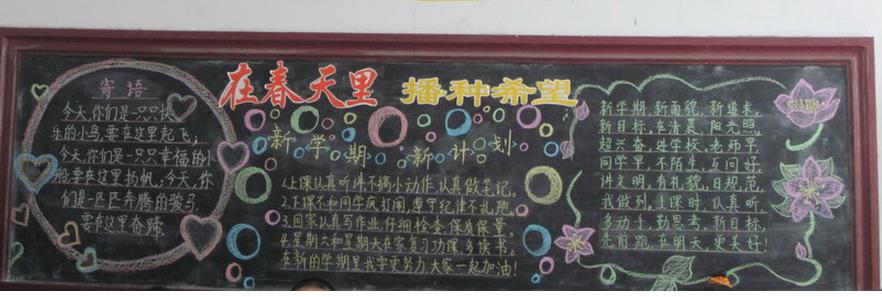 在春天里 播种希望
寄语
今天,你们是一只只快
乐的小鸟,要在这里起飞,
今天,你们是一只只幸福的小
船要在这里扬帆;今天,你
们是一匹匹奔腾的骏马,
要在这里奋蹄.
新学期新计划
1.上课认真听讲不搞小动作,认真做笔记。
2.下课不和同学疯打闹,遵守纪律不乱跑。
3.回家认真写作业,仔细检查,保质保量。
4.星期六和星期天在家复习功课多读书。
在新的学期里我要更努力,大家一起加油!
新学期,新面貌,新追求,
新目标,在清晨,阳光照,
超兴奋,进学校,老师早,
同学早,不陌生,互问好,
讲文明,有礼貌,日规范,
我做到,上课时,认真听,
多动手,勤思考,新目标,
先前跑,在明天,更美好!